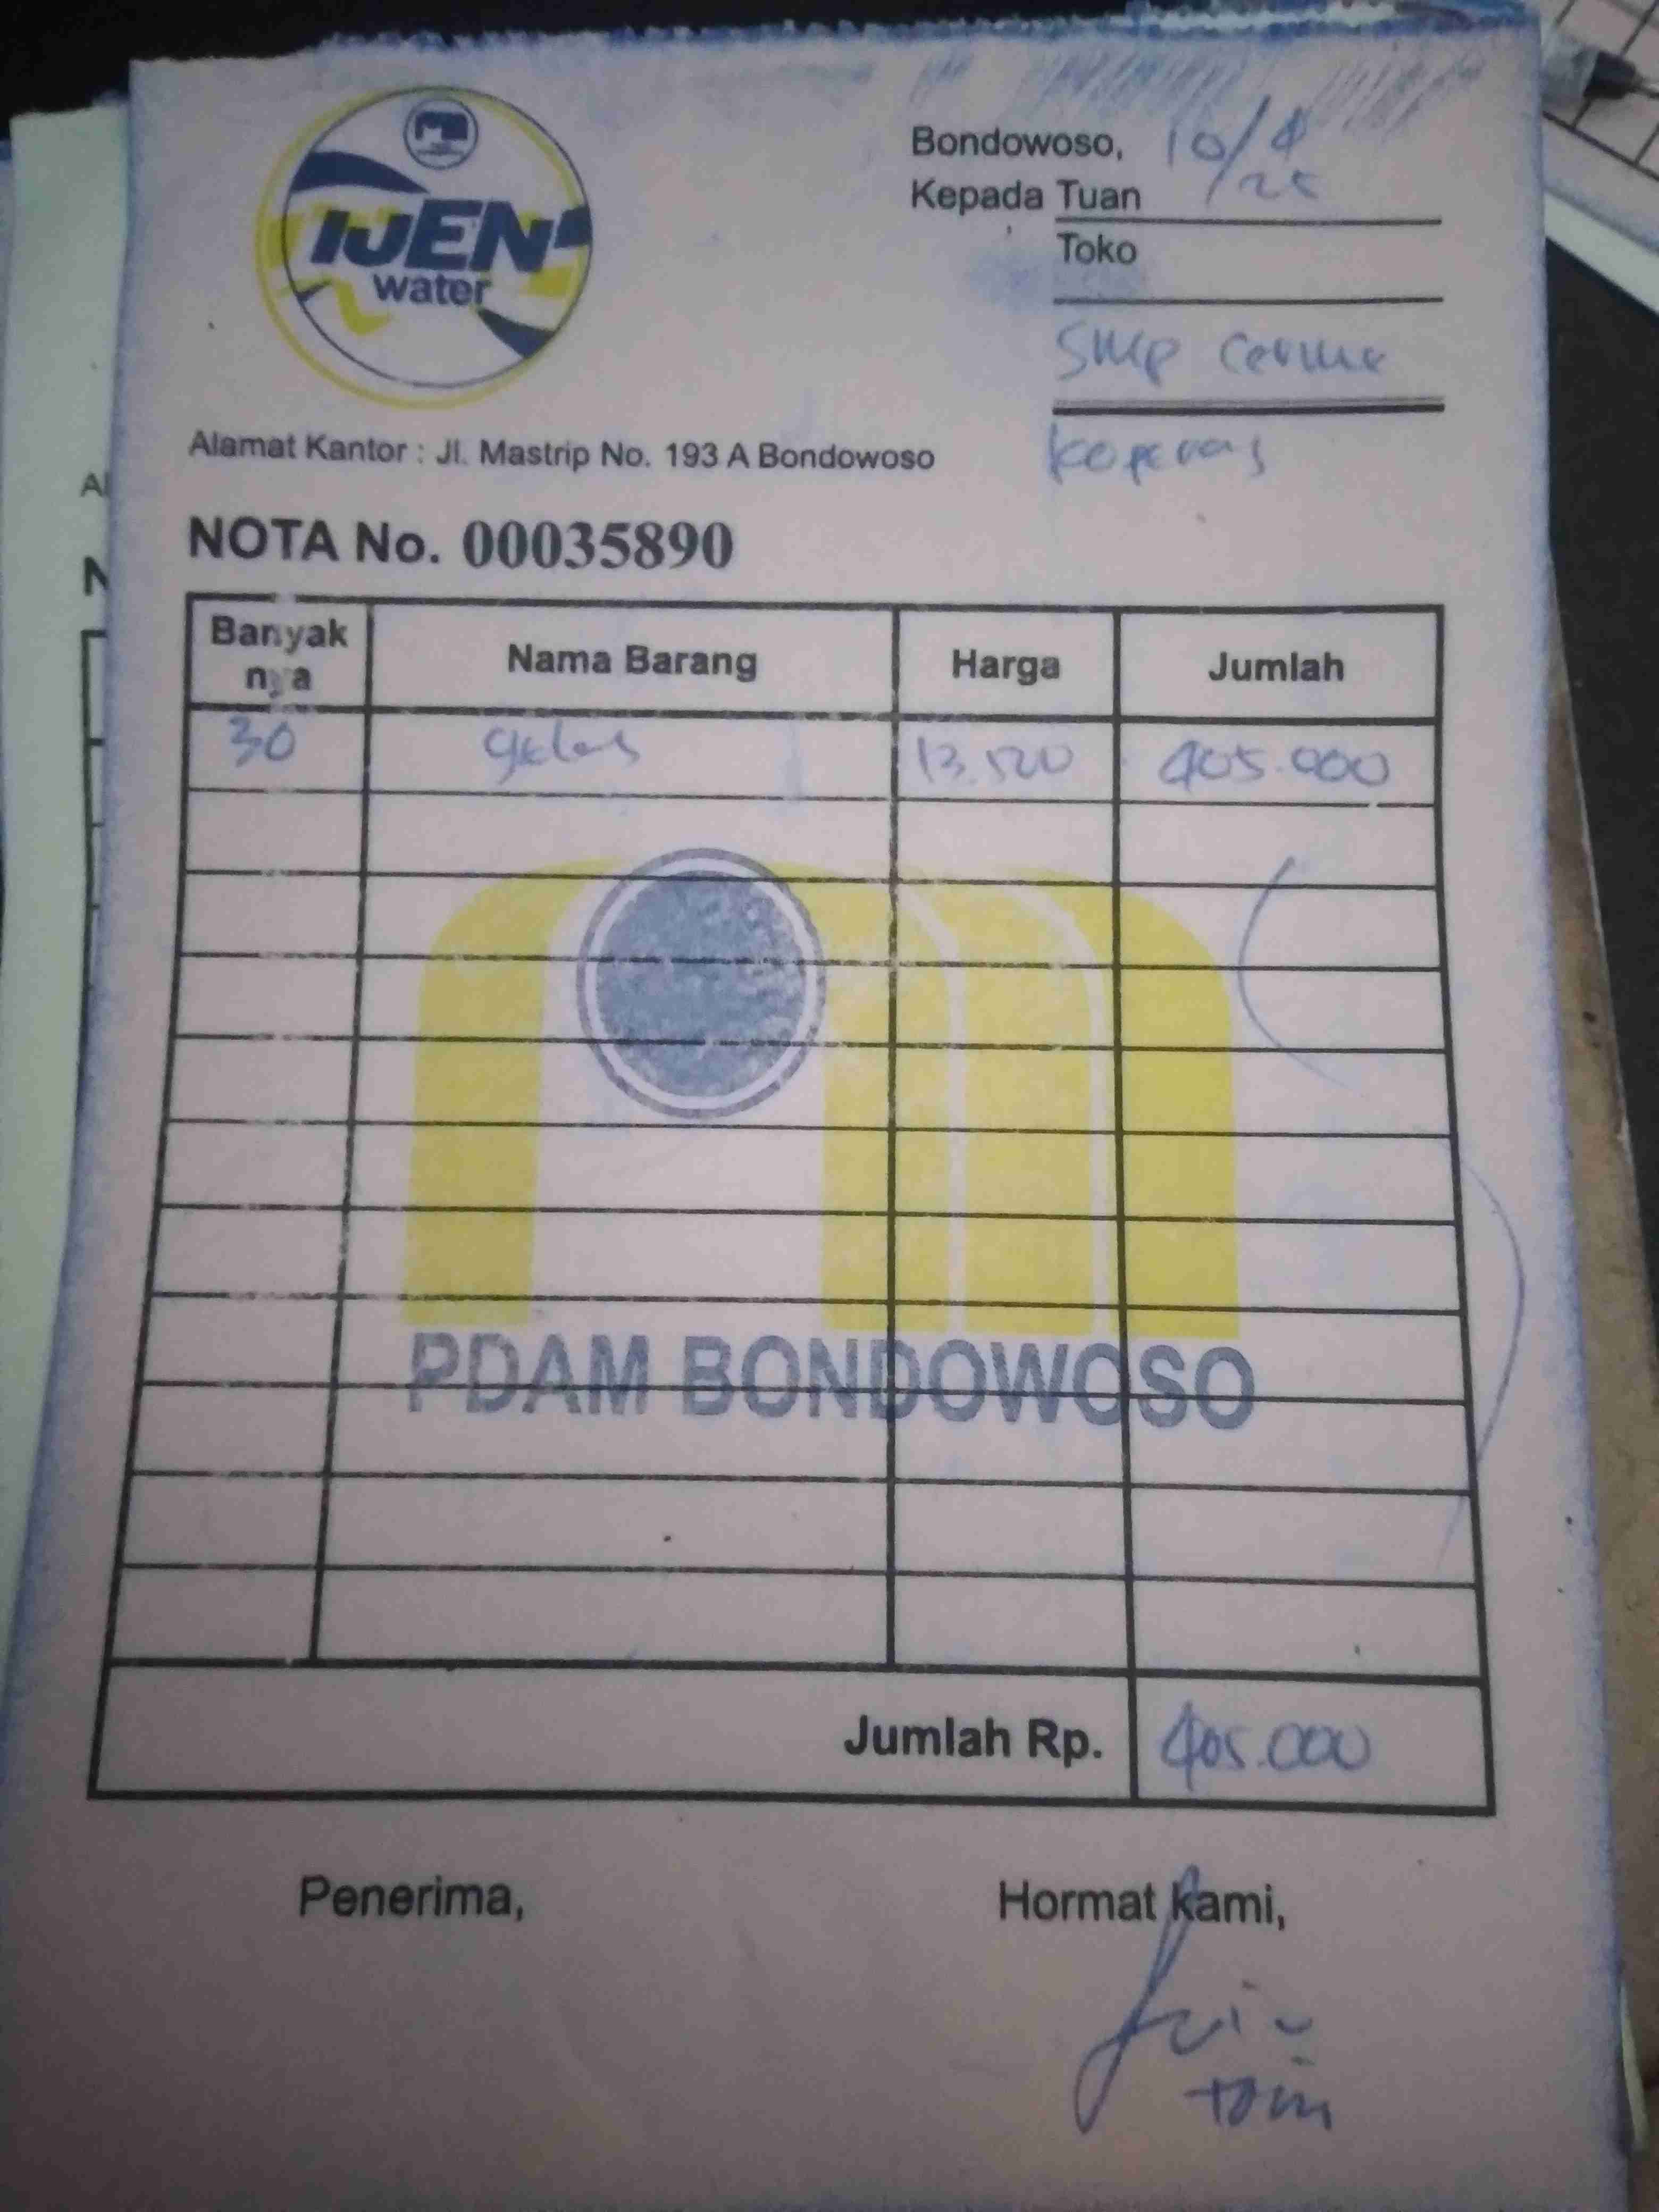 IJEN
water
Bondowoso, 10/4/25
Kepada Tuan
Toko
SMP Cerme
Koperas
Alamat Kantor : Jl. Mastrip No. 193 A Bondowoso
NOTA No. 00035890
Banyak nya Nama Barang Harga Jumlah
30 gelas 13.500 405.000
PDAM BONDOWOSO
Jumlah Rp. 405.000
Penerima, Hormat kami,